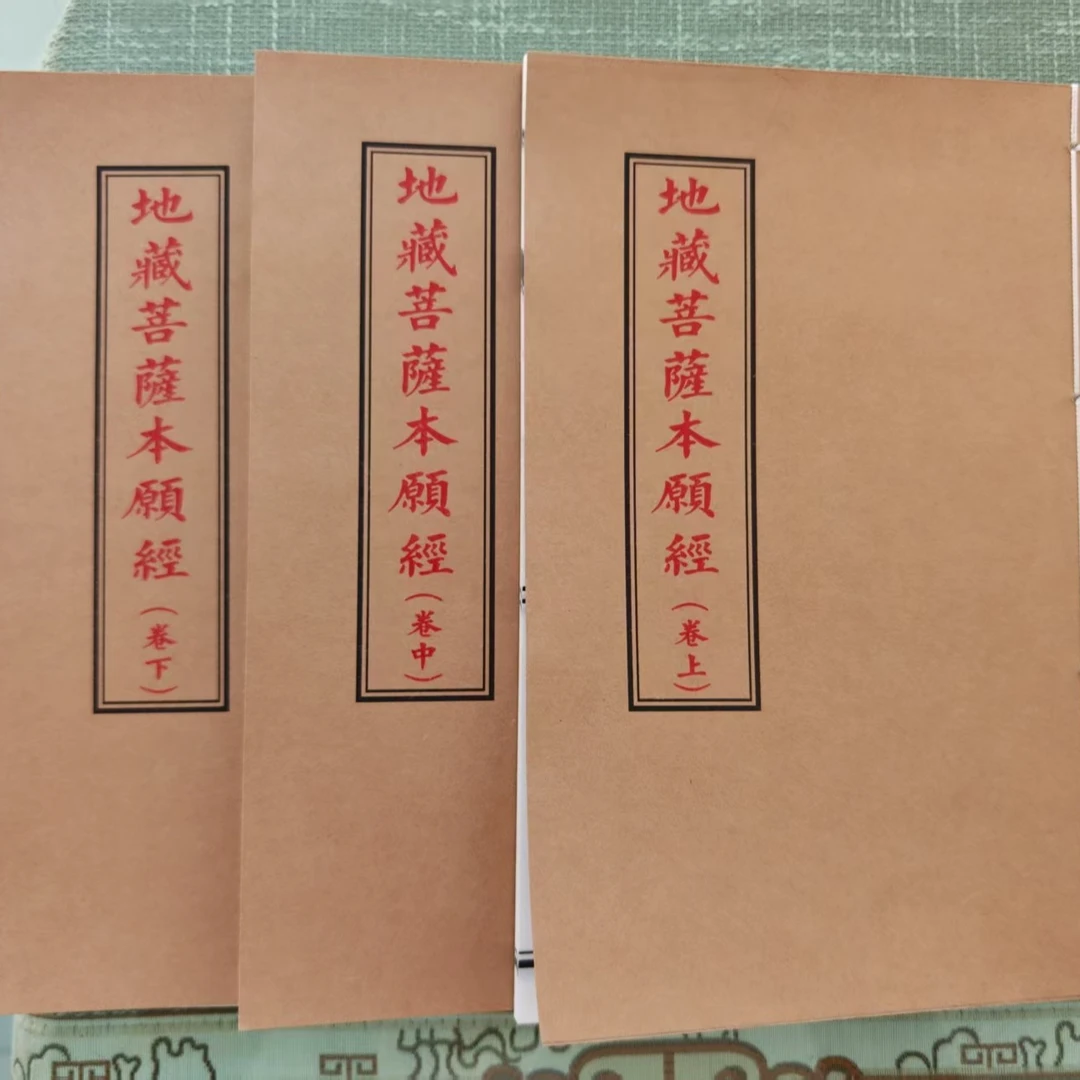 地藏菩薩本願經（卷上）
地藏菩薩本願經（卷中）
地藏菩薩本願經（卷下）